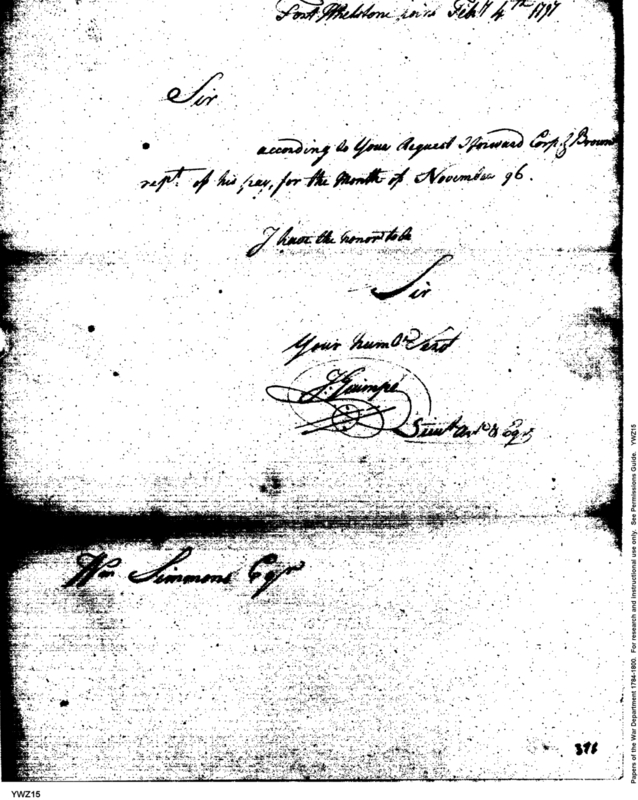 Fort Whelstone Feby 4th 1797
Sir
according to Your Request I forward Corpl Brown
rept of his pay, for the Month of November 96.
I have the honor to be
Sir
Your humble Servt
J. Gaimpé
Lieut Arts & Egrs
Wm Simmons Esqr
376
YWZ15
Papers of the War Department 1784-1800. For research and instructional use only. See Permissions Guide. YWZ15